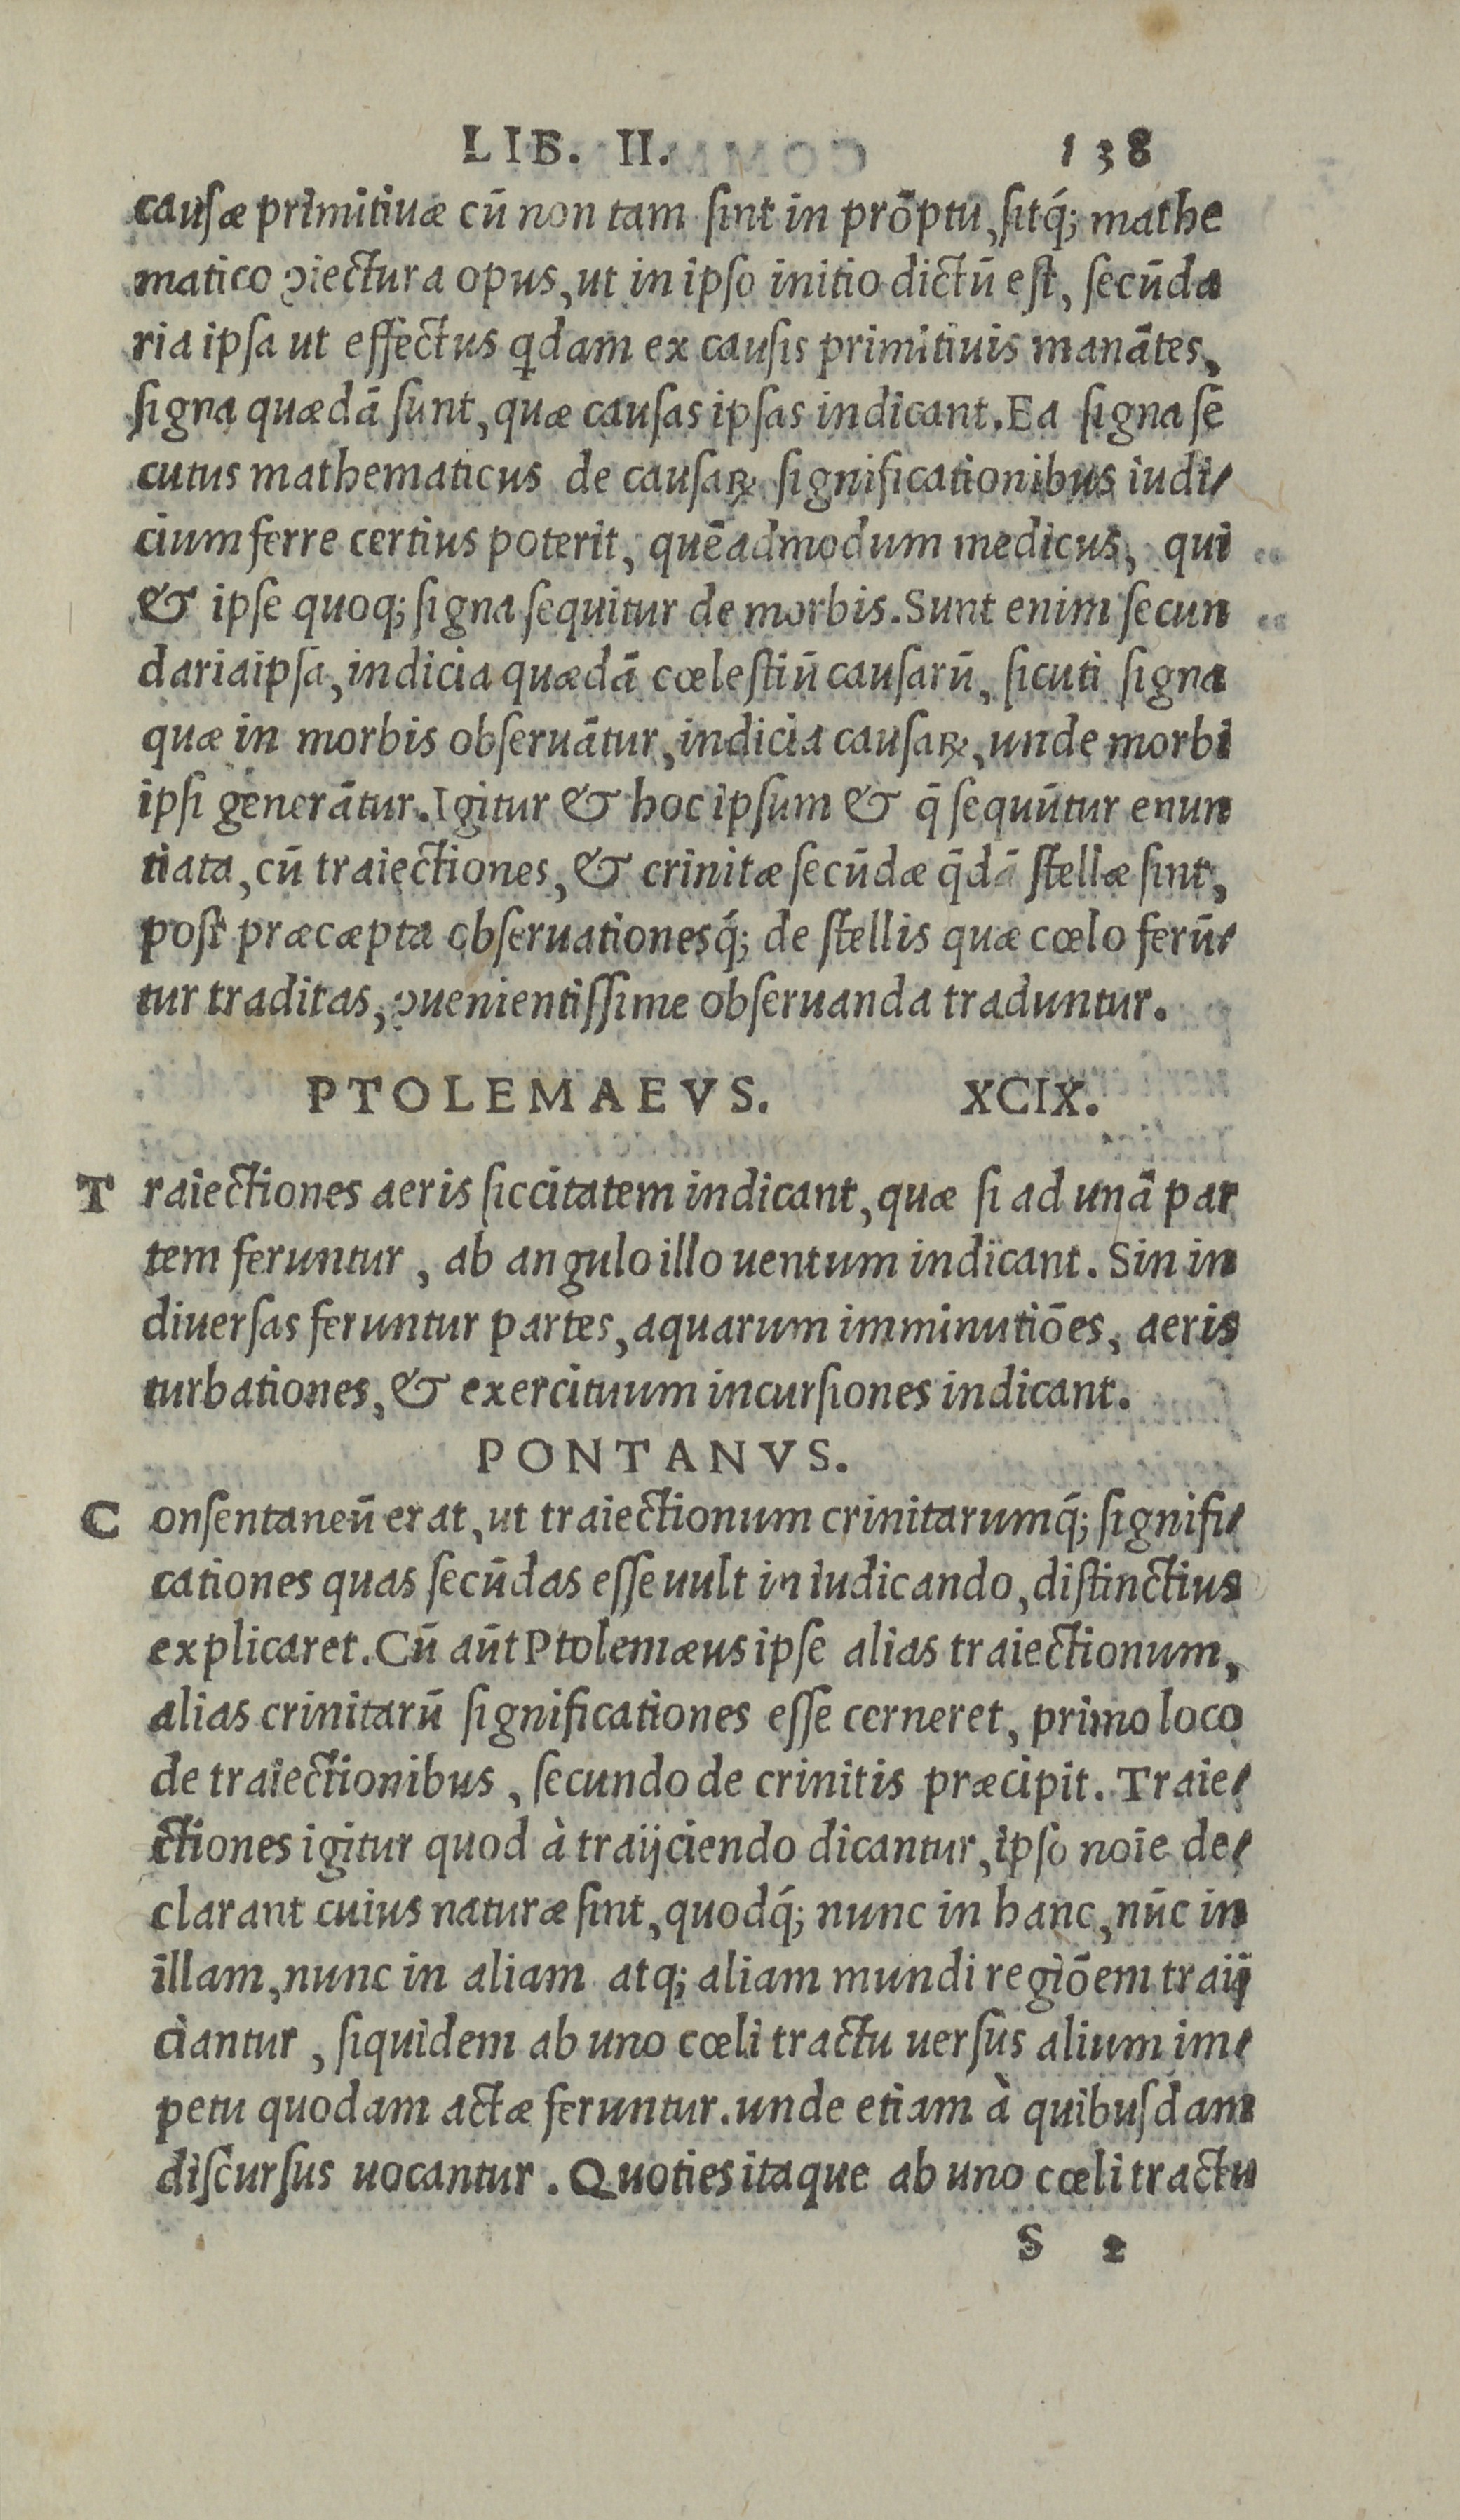 LIB. II. 138
cauſæ primitiuæ cū non tam ſint in prōptu, ſitq́; mathe
matico ꝯiectura opus, ut in ipſo initio dictū eſt, ſecūda
ria ipſa ut effectus qdam ex cauſis primitiuis manātes,
ſigna quædā ſunt, quæ cauſas ipſas indicant. Ea ſigna ſe
cutus mathematicus de cauſaꝝ ſignificationibus iudi⸗
cium ferre certius poterit, quēadmodum medicus, qui
& ipſe quoq; ſigna ſequitur de morbis. Sunt enim ſecun
daria ipſa, indicia quædā cœleſtiū cauſarū, ſicuti ſigna
quæ in morbis obſeruātur, indicia cauſaꝝ, unde morbi
ipſi generātur. Igitur & hoc ipſum & q̄ ſequūtur enun
tiata, cū traiectiones, & crinitæ ſecūdæ q̄dā ſtellæ ſint,
poſt præcæpta obſeruationesq́; de ſtellis quæ cœlo ferū⸗
tur traditas, ꝯuenientiſſime obſeruanda traduntur.
PTOLEMAEVS. XCIX.
Traiectiones aeris ſiccitatem indicant, quæ ſi ad unā par
tem feruntur, ab angulo illo uentum indicant. Sin in
diuerſas feruntur partes, aquarum imminutiōes, aeris
turbationes, & exercituum incurſiones indicant.
PONTANVS.
Conſentaneū erat, ut traiectionum crinitarumq́; ſignifi⸗
cationes quas ſecūdas eſſe uult in iudicando, diſtinctius
explicaret. Cū aūt Ptolemæus ipſe alias traiectionum,
alias crinitarū ſignificationes eſſe cerneret, primo loco
de traiectionibus, ſecundo de crinitis præcipit. Traie⸗
ctiones igitur quod à traijciendo dicantur, ipſo noīe de⸗
clarant cuius naturæ ſint, quodq́; nunc in hanc, nūc in
illam, nunc in aliam atq; aliam mundi regiōem traij
ciantur, ſiquidem ab uno cœli tractu uerſus alium im⸗
petu quodam actæ feruntur. unde etiam à quibuſdam
diſcurſus uocantur. Quoties itaque ab uno cœli tractu
S 2